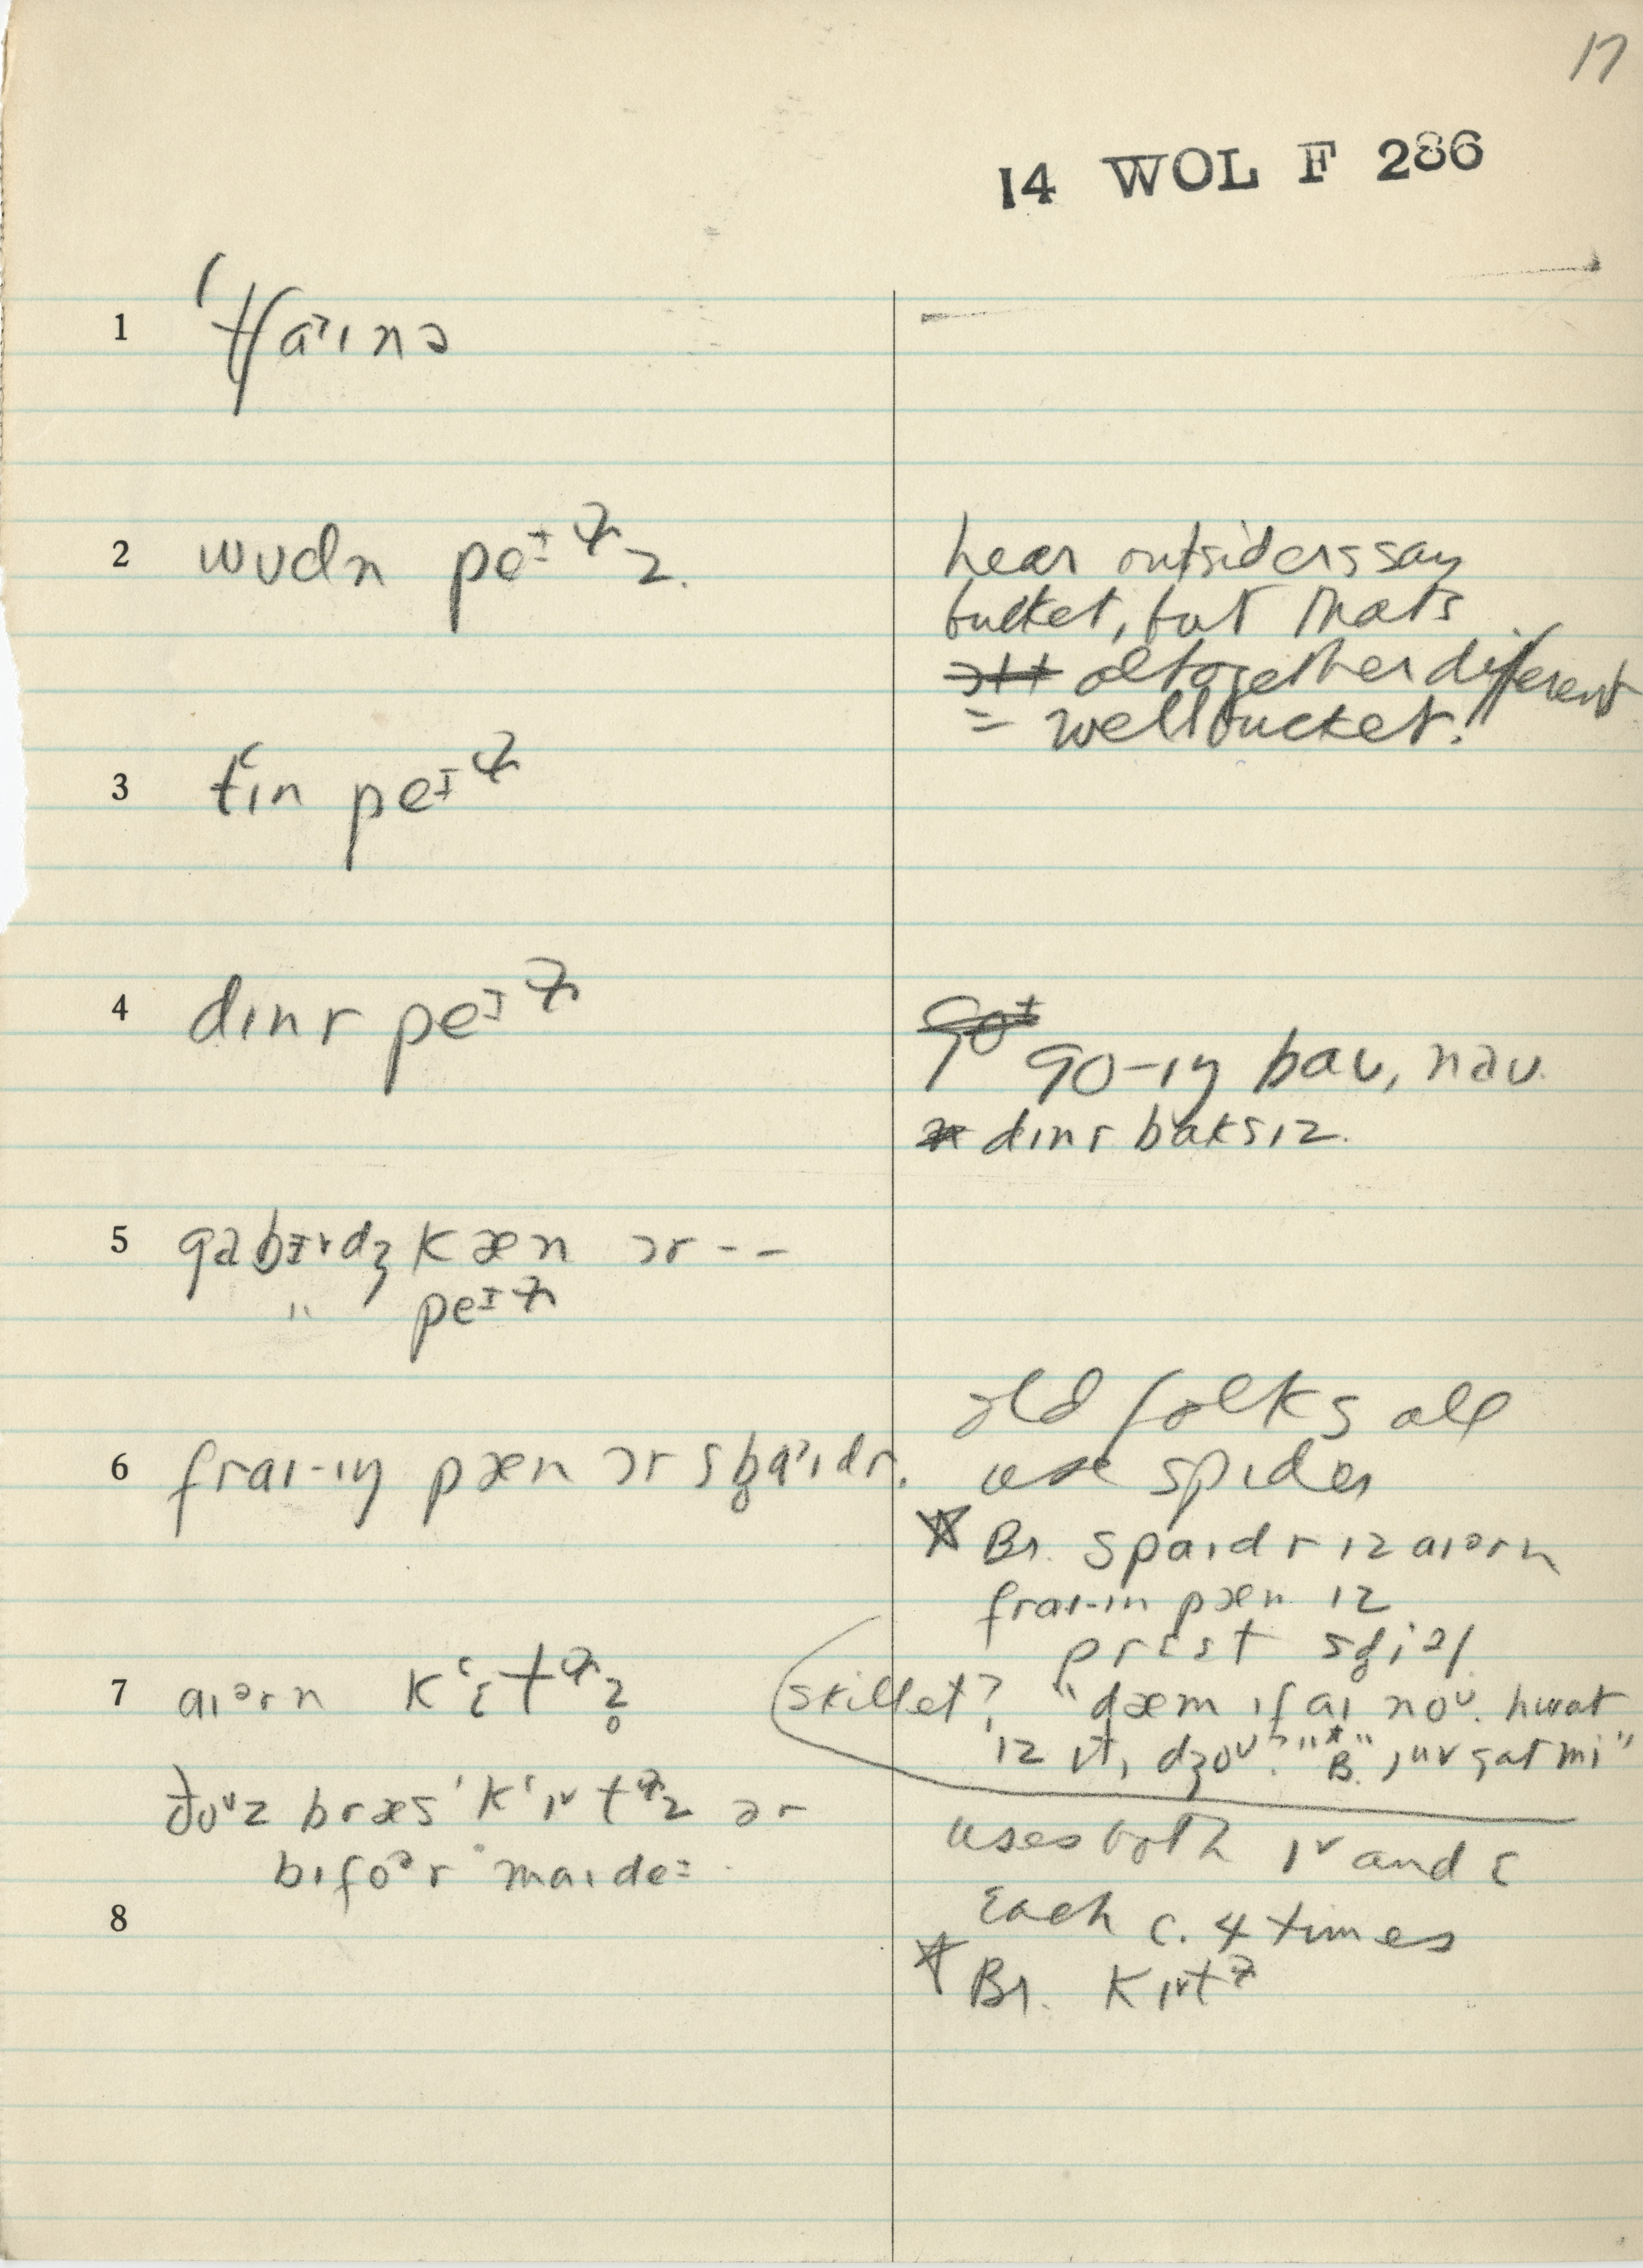 17
14 WOL F 286
1 ˈtʃaɪnə
2 wʊdn peɪɫz.
hear outsiders say
bucket, but thats
altogether different
= well bucket.
3 tʻɪn peɪɫ
4 dɪnr peɪɫ
go-ɪŋ baʊ, naʊ.
dɪnr baksɪz.
5 gabɪdʒ kæn ɔr - -
" peɪɫ
6 fraɪ-ɪŋ pæn ɔr sb̥aɪdr.
old folks all
use spider
☆ Br. spaɪdr ɪz aɪərn
fraɪ-ɪn pæn ɪz
prɛst sd̥iəl
7 aɪərn kʻɛtɫz̥
skillet? "dæm ɪf aɪ noʊ. hwat
ɪz ɪt, dʒoʊ?" "B.", juv gat mi"
ðoʊz bræs ˈkʻɪtɫz ər
bɪfoər maɪ de
uses both ɪ˅ and ɛ
Each c. 4 times
☆ Br. kɪ˅tɫ
8